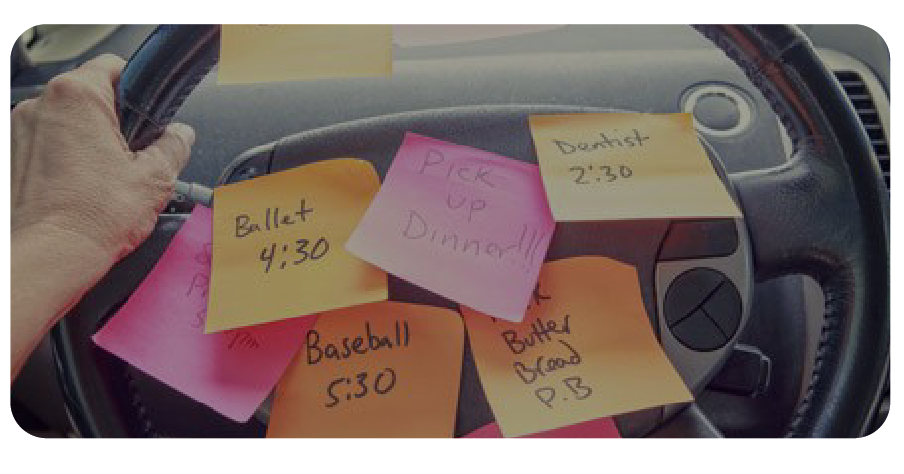 Dentist
2:30
Pick
up
Dinner!!!
Ballet
4:30
Baseball
5:30
Butter
Bread
P.B